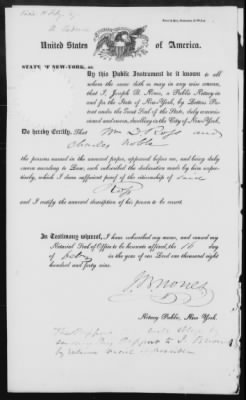 United States of America.
STATE OF NEW-YORK, ss.
By this Public Instrument be it known to all
whom the same doth or may in any wise concern,
that I, Joseph B. Nones, a Public Notary in
and for the State of New-York, by Letters Patent
under the Great Seal of the State, duly commissioned
and sworn, dwelling in the City of New-York,
Do hereby Certify, That Wm D Ross and
Charles Noble
the persons named in the annexed papers, appeared before me, and being duly
sworn according to Law; each subscribed the declaration made by him respectively,
which I deem sufficient proof of the citizenship of said
Ross
and I certify the annexed description of his person to be correct
In Testimony whereof, I have subscribed my name, and caused my
Notarial Seal of Office to be hereunto affixed, the 16 day
of in the year of our Lord one thousand eight
hundred and forty nine.
J B Nones
Notary Public, New York.